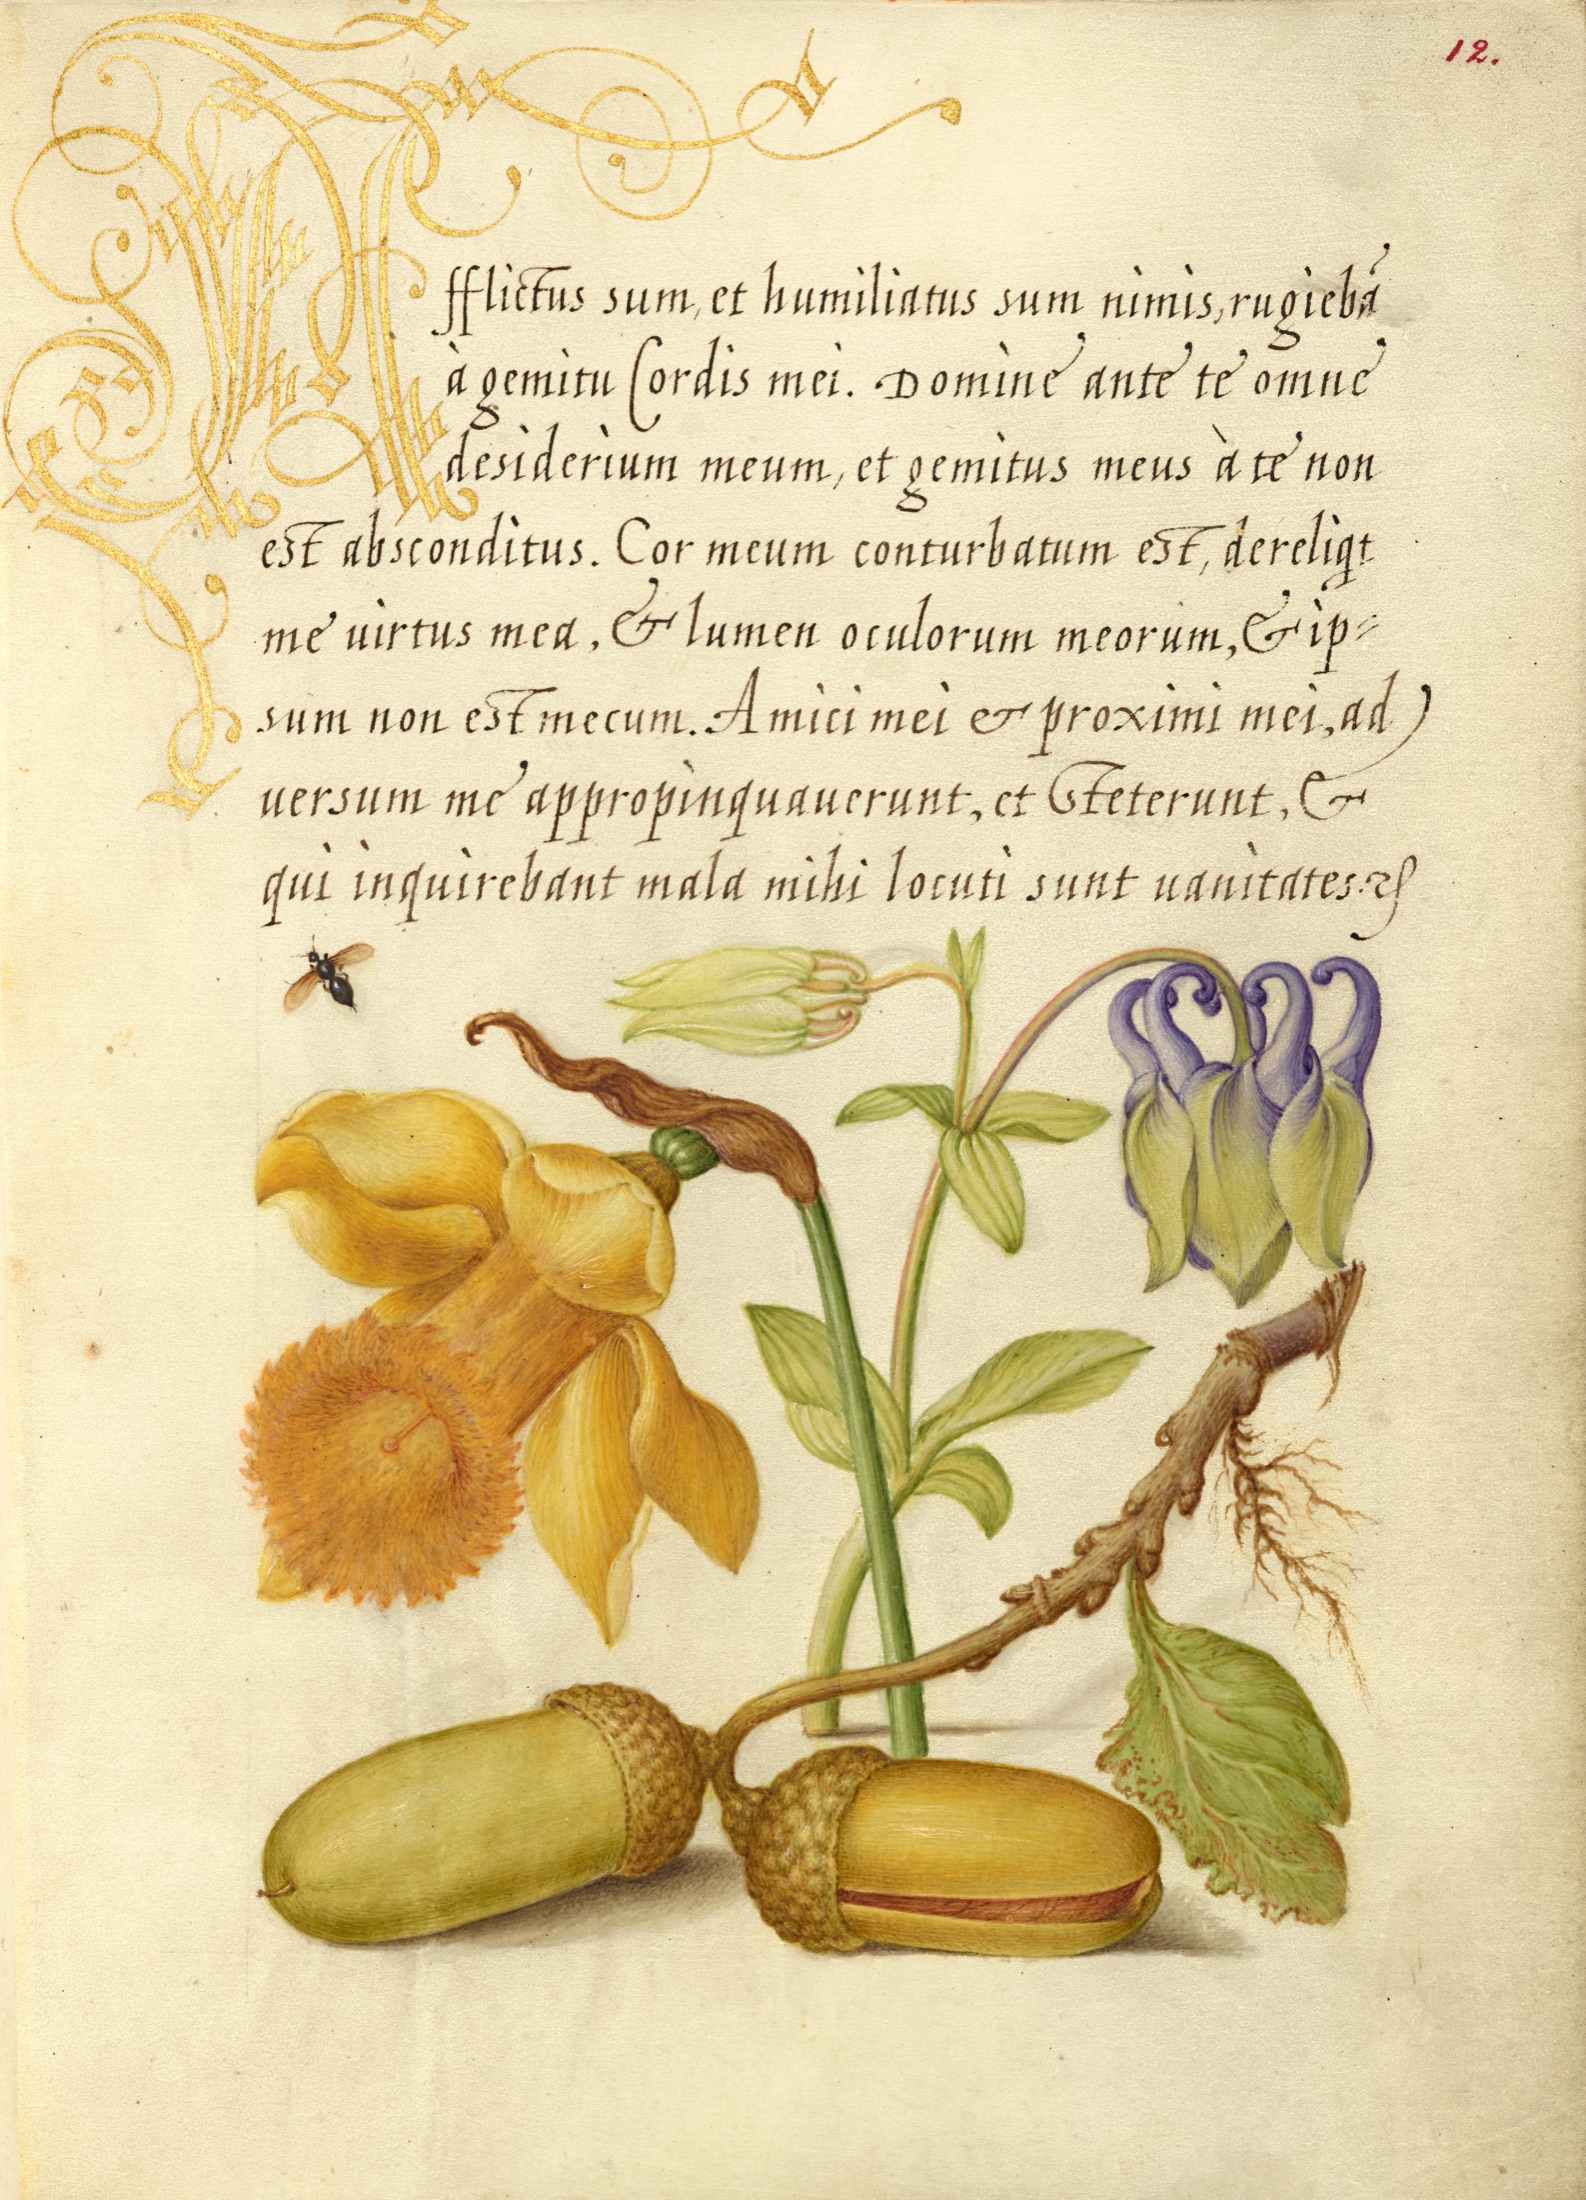 12.
Afflictus sum, et humiliatus sum nimis, rugiebā
à gemitu Cordis mei. Domine ante te omne
desiderium meum, et gemitus meus à te non
est absconditus. Cor meum conturbatum est, dereliqt
me uirtus mea, & lumen oculorum meorum, & ip=
sum non est mecum. Amici mei & proximi mei, ad
uersum me appropinquauerunt, et Steterunt, &
qui inquirebant mala mihi locuti sunt uanitates.